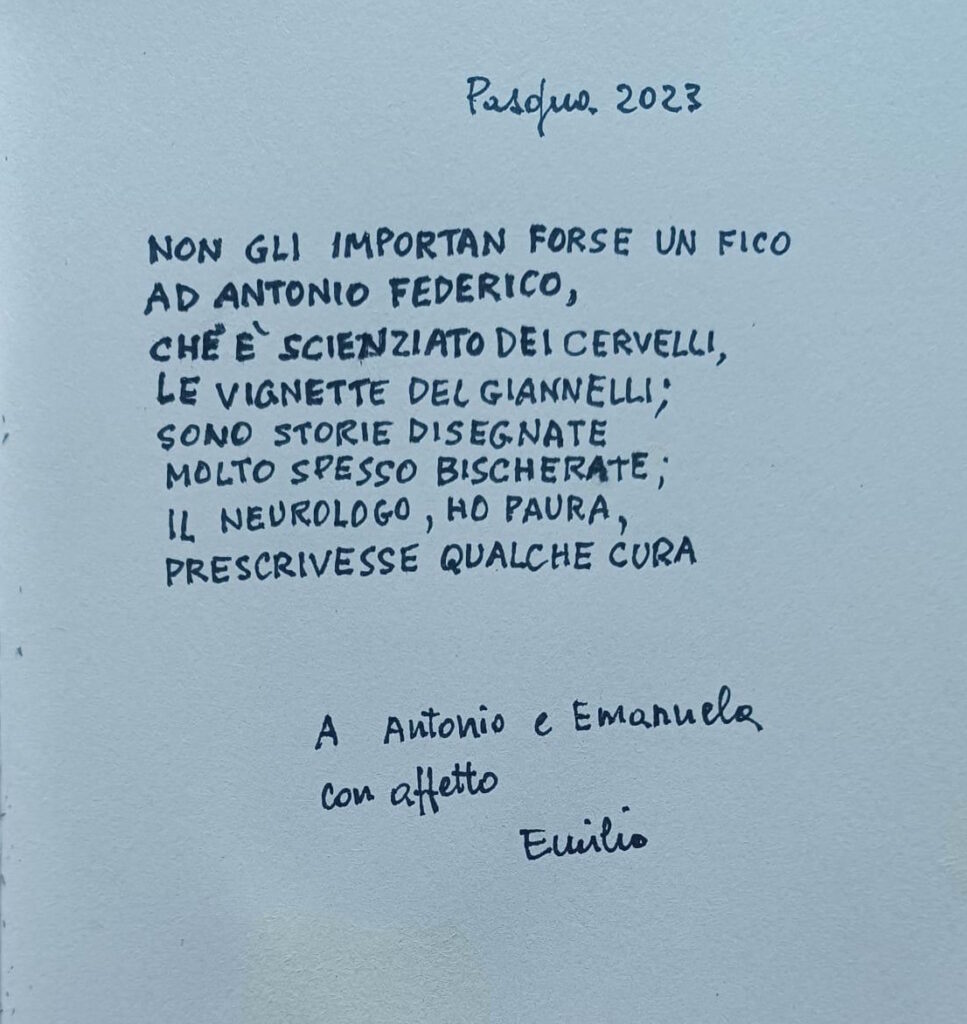 Pasqua 2023
NON GLI IMPORTAN FORSE UN FICO
AD ANTONIO FEDERICO,
CHÉ È SCIENZIATO DEI CERVELLI,
LE VIGNETTE DEL GIANNELLI;
SONO STORIE DISEGNATE
MOLTO SPESSO BISCHERATE;
IL NEUROLOGO, HO PAURA,
PRESCRIVESSE QUALCHE CURA
A Antonio e Emanuela
con affetto
Emilio